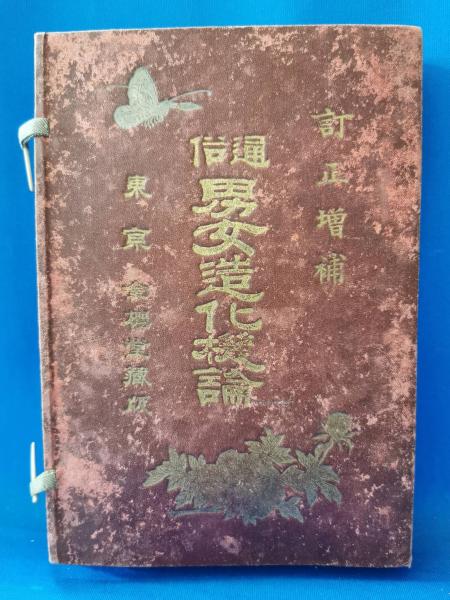 訂正增補
通俗
男女造化機論
東京 金櫻堂藏版